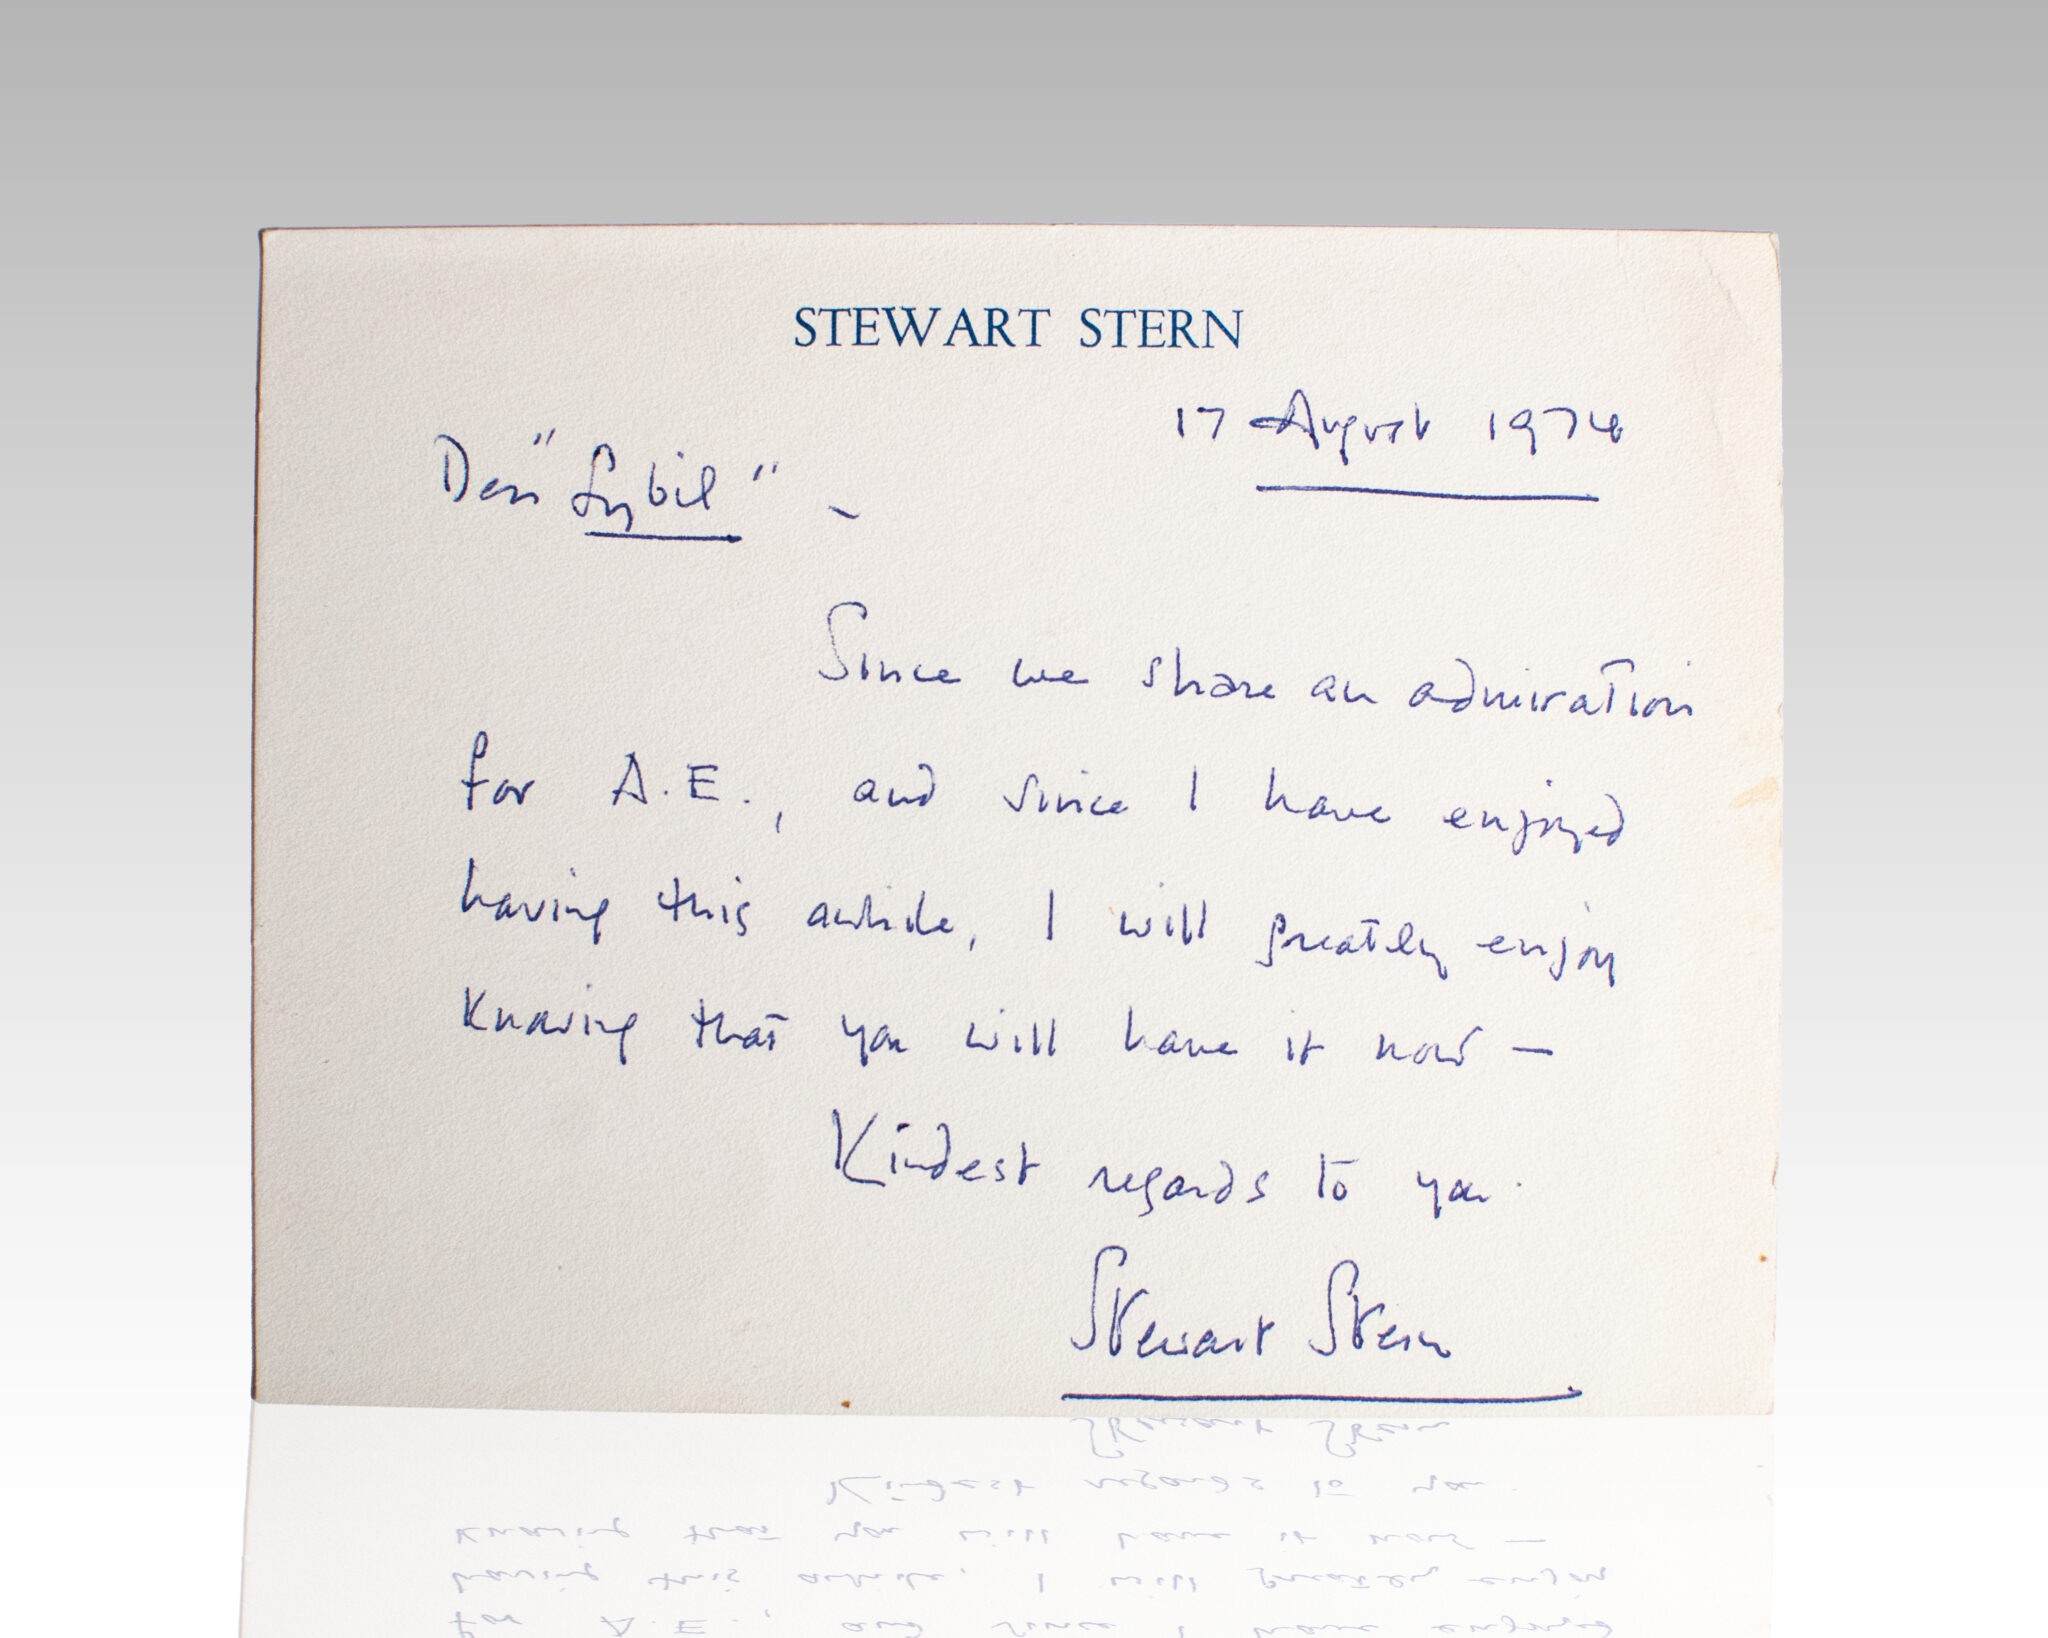 STEWART STERN
17 August 1974
Dear "Sybil" –
Since we share an admiration
for A.E., and since I have enjoyed
having this awhile, I will greatly enjoy
knowing that you will have it now –
Kindest regards to you.
Stewart Stern